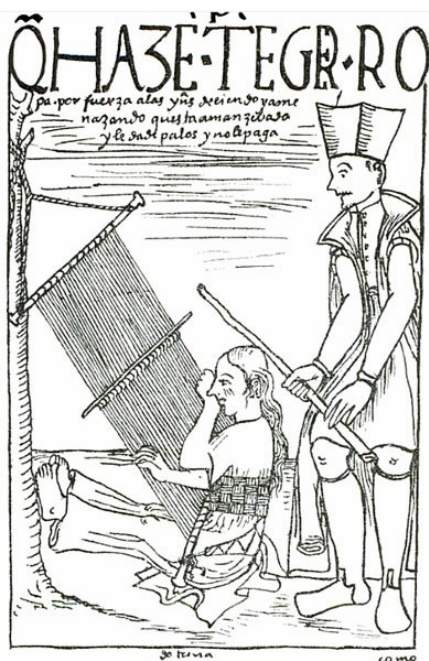 Q̃ HAZE·TEGER·RO
pa·por fuerza alas yñs deciendo yame
nazando questa amanzebada
y le dadẽ palos y nole paga
do trina
como